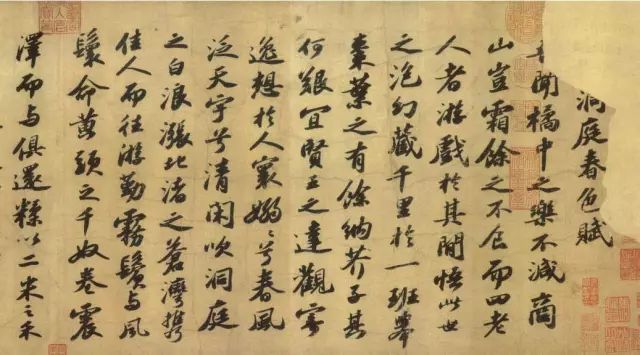 洞庭春色賦
吾聞橘中之樂不減商
山豈霜餘之不食而四老
人者游戲於其間悟此世
之泡幻藏千里於一班舉
棗葉之有餘納芥子其
何艱宜賢王之達觀寄
逸想於人寰嫋〻兮春風
泛天宇兮清閑吹洞庭
之白浪漲北渚之蒼灣攜
佳人而往游勤霧鬢與風
鬟命黃頭之千奴卷震
澤而與俱還糅以二米之禾